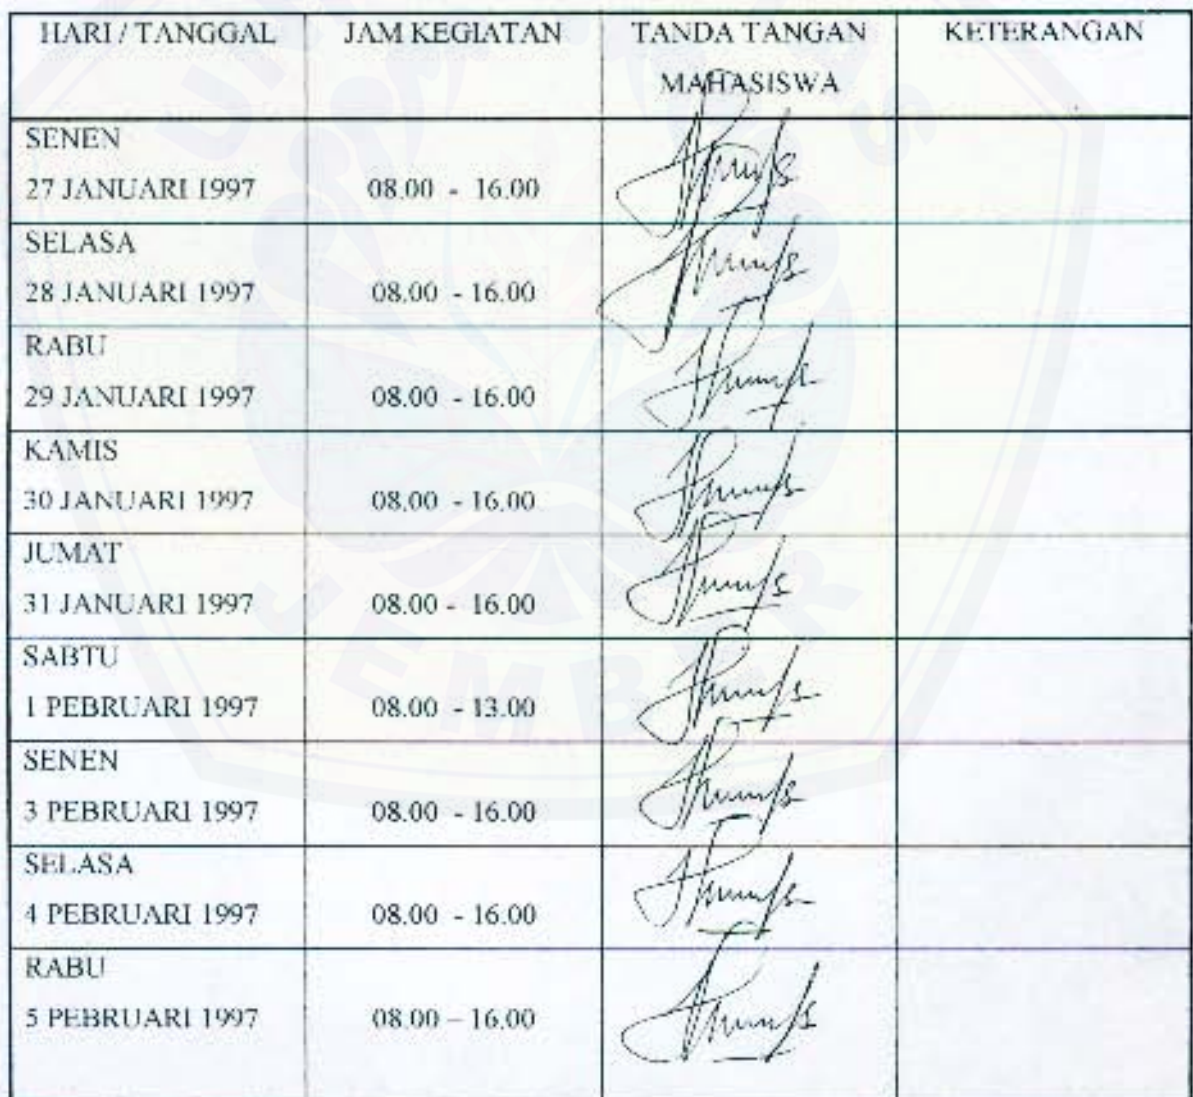 HARI / TANGGAL JAM KEGIATAN TANDA TANGAN KETERANGAN
MAHASISWA
SENEN
27 JANUARI 1997 08.00 - 16.00
SELASA
28 JANUARI 1997 08.00 - 16.00
RABU
29 JANUARI 1997 08.00 - 16.00
KAMIS
30 JANUARI 1997 08.00 - 16.00
JUMAT
31 JANUARI 1997 08.00 - 16.00
SABTU
1 PEBRUARI 1997 08.00 - 13.00
SENEN
3 PEBRUARI 1997 08.00 - 16.00
SELASA
4 PEBRUARI 1997 08.00 - 16.00
RABU
5 PEBRUARI 1997 08.00 – 16.00
JEMBER